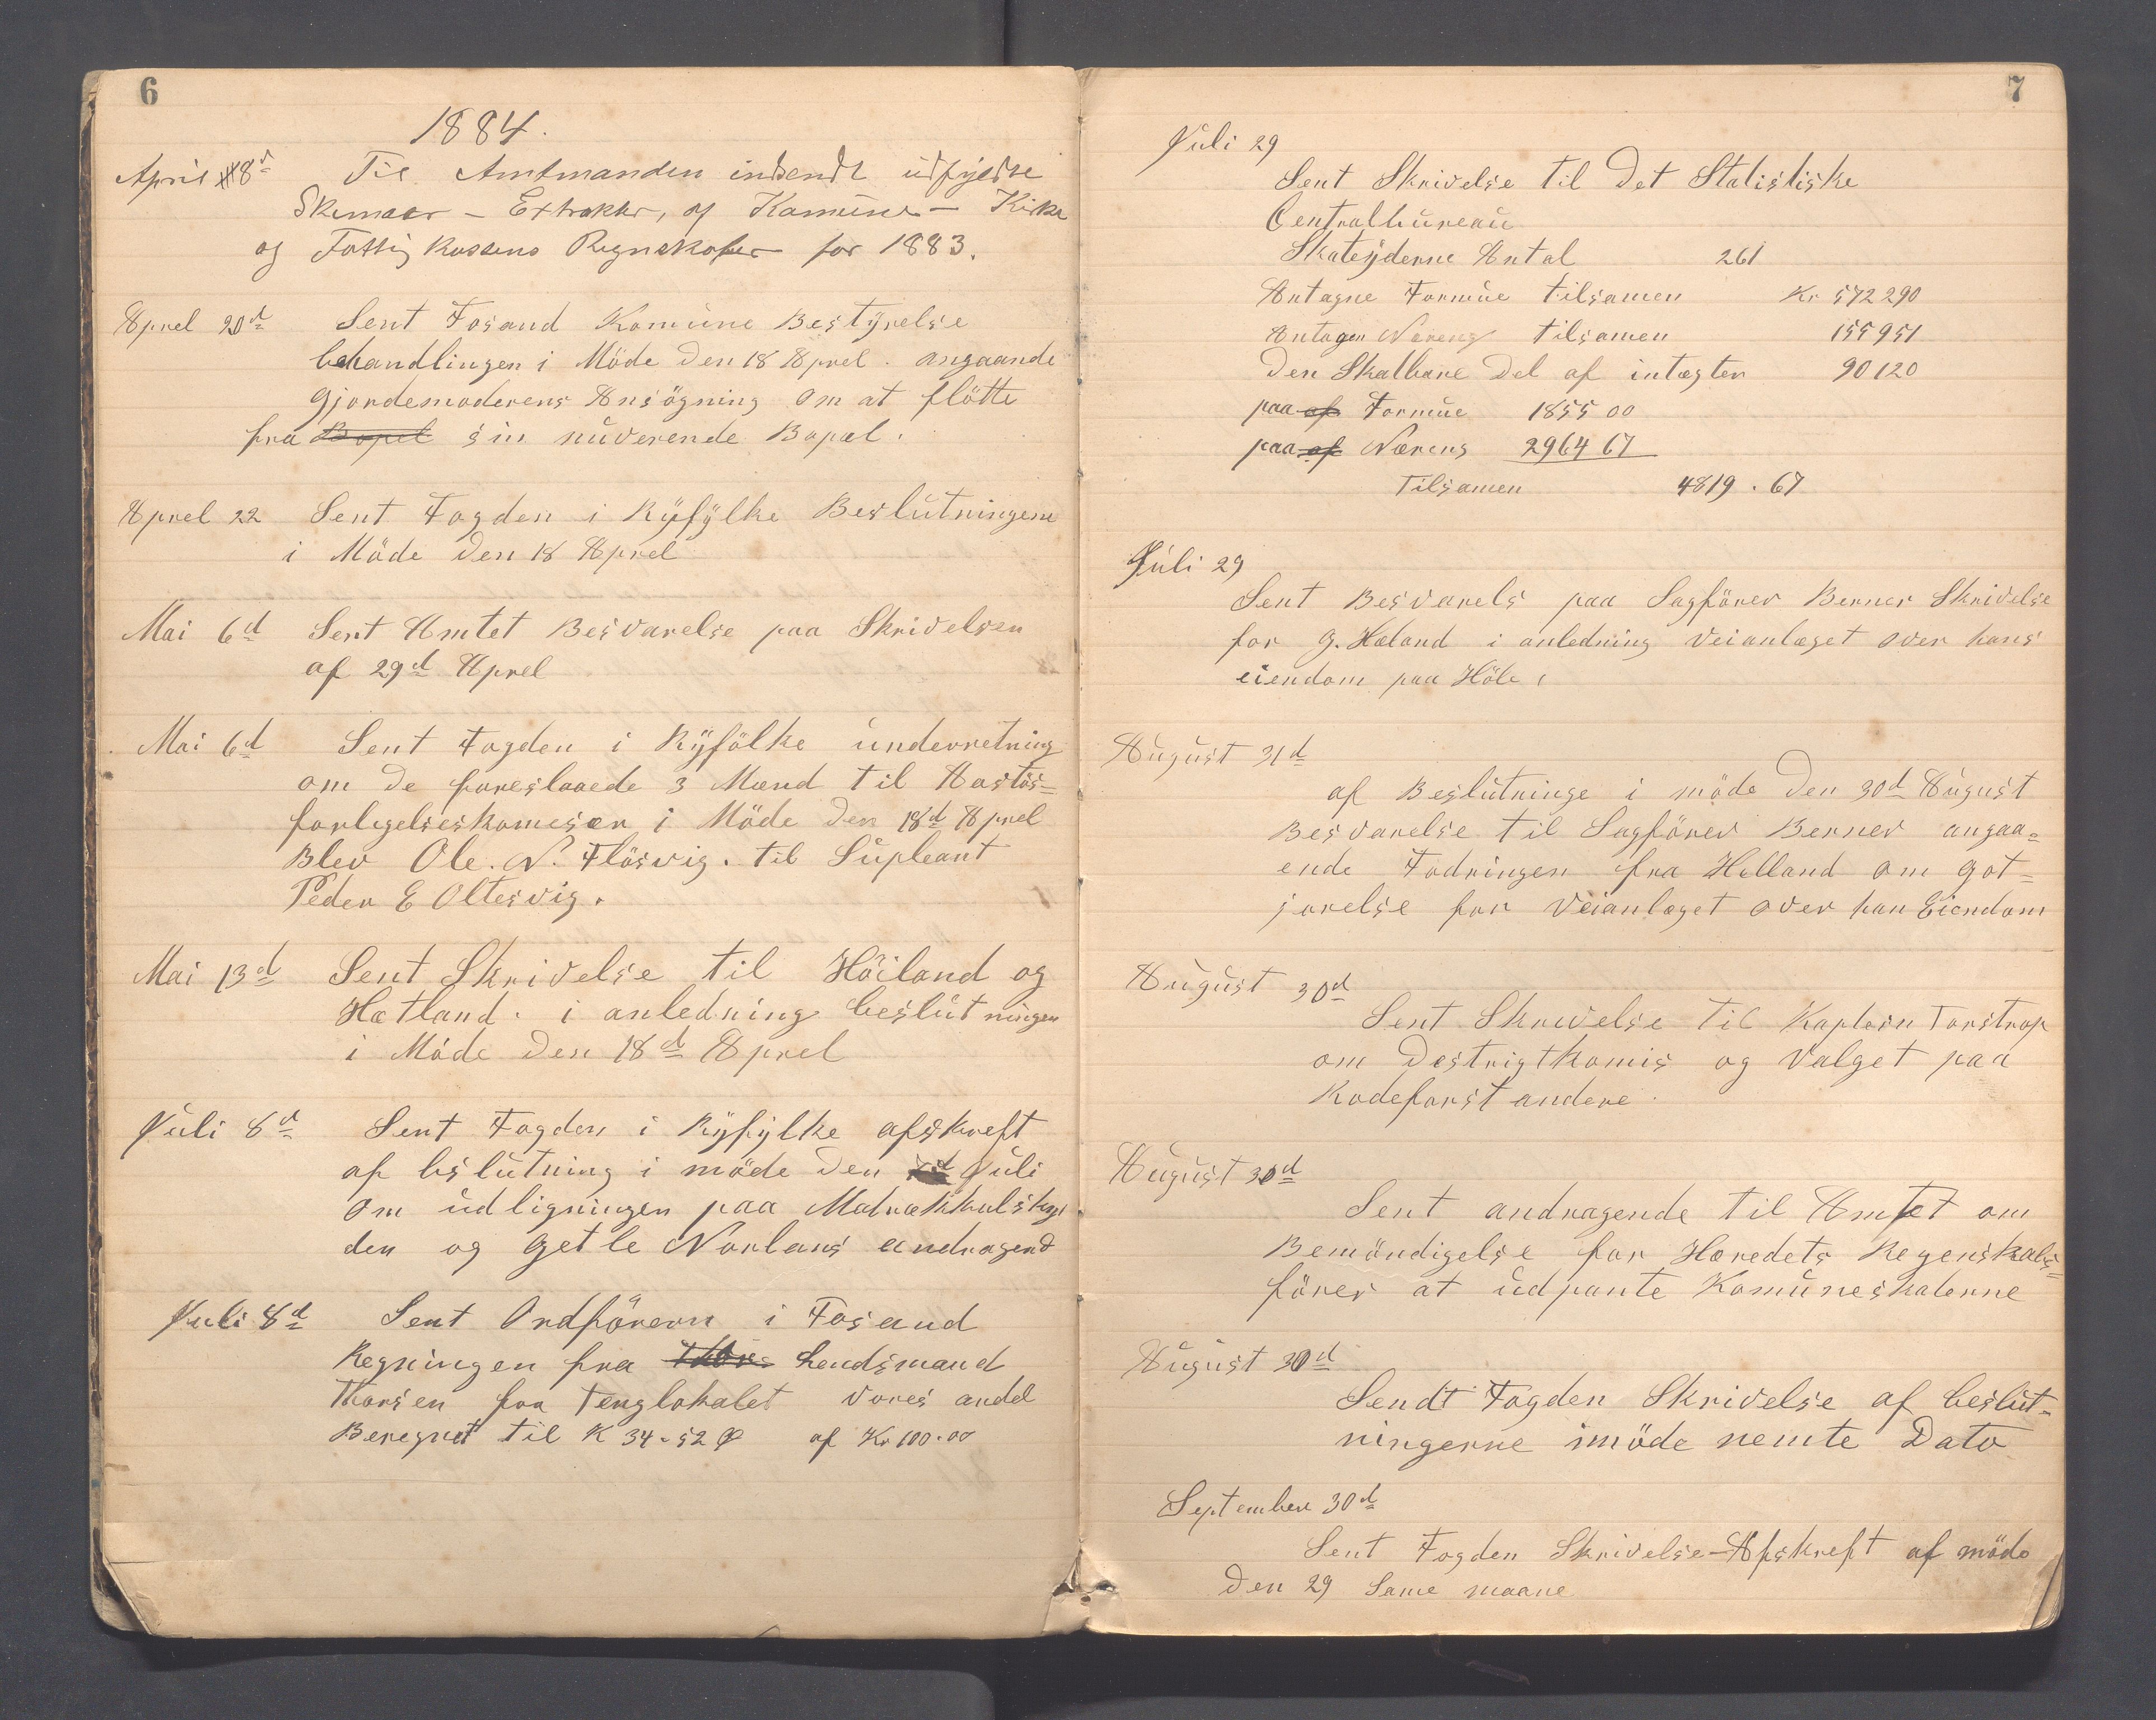 6
1884.
April 8d Til Amtmanden indsendt udfyldte
Skemaer - Extrakter, af Kamune - Kirke
og Fattig Kassens Regnskaber for 1883.
Aprel 20d Sent Fosand Komune Bestyrelse
behandlingen i Möde den 18 Aprel. angaande
gjordemoderens Ansögning om at flötte
fra Bopel sin nuverende Bopæl.
Aprel 22 Sent Fogden i Ryfylke Beslutningene
i Möde den 18 Aprel
Mai 6d Sent Amtet Besvarelse paa Skrivelsen
af 29d Aprel
Mai 6d Sent Fogden i Ryfölke underretning
om de foreslaaede 3 Mænd til
forligelseskomesen i Möde den 18d Aprel
Blev Ole. N. Flösvig. til Supleant
Peder E Oltesvig.
Mai 13d Sent Skrivelse til Höiland og
Hætland. i anledning beslutningen
i Möde den 18d Aprel
Juli 8d Sent Fogden i Ryfylke afskreft
af beslutning i möde den Juli
om udligningen paa Matrekkulskyl
den og Getle Norlans andragend
Juli 8d Sent Ordförern i Fosand
Regningen fra Lendsmand
Thorsen for Tenglokalet vores andel
Beregnet til K 34.52 Ø af Kr 100.00
7
Juli 29
Sent Skrivelse til det Statistiske
Centralbureau
Skateyderne Antal 261
Antagne Formue tilsamen Kr 572290
Antagen Nærens tilsamen 155951
den Skatbare Del af intægten 90120
paa af Formue 1855 00
paa af Nærens 2964 67
Tilsamen 4819.67
Juli 29
Sent Besvarels paa Sagförer Berner Skrivelse
for G. Haland i anledning veianlæget over hans
eiendom paa Höle.
August 31d
af Beslutninge i möde den 30d August
Besvarelse til Sagförer Berner angaa=
ende Fodringen fra Helland om got=
jorelse for veianlæget over han Eiendom
August 30d
Sent Skrivelse til Kaptein Torstrop
om Destrigtkomis og Valget paa
Rodeforstandere.
August 30d
Sent andragende til Amtet om
Bemöndigelse for Heredets Regenskabs=
förer at udpante Komuneskaterne
August 30d
Sendt Fogden Skrivelse af beslut=
ningerne imöde nemte Dato
September 30d
Sent Fogden Skrivelse-Afskreft af möde
den 29 Same maane